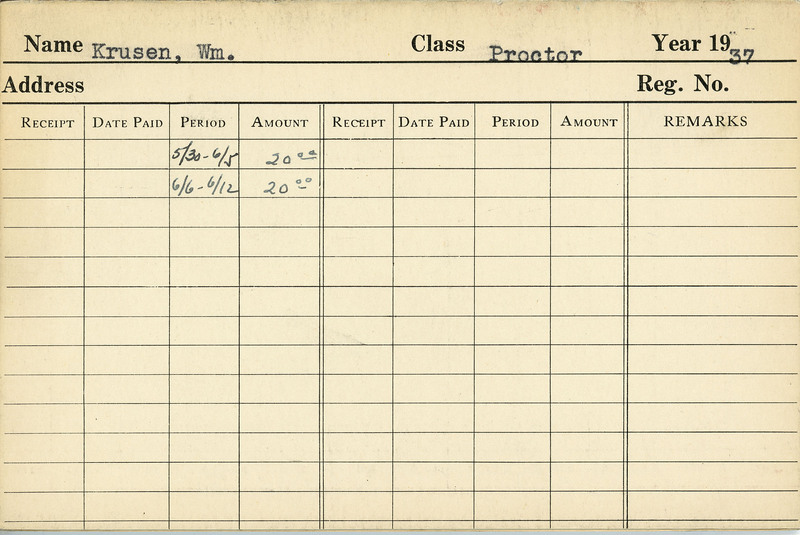 Name Krusen, Wm. Class Proctor Year 1937
Address Reg. No.
RECEIPT DATE PAID PERIOD AMOUNT RECEIPT DATE PAID PERIOD AMOUNT REMARKS
5/30-6/5 20 00
6/6-6/12 20 00